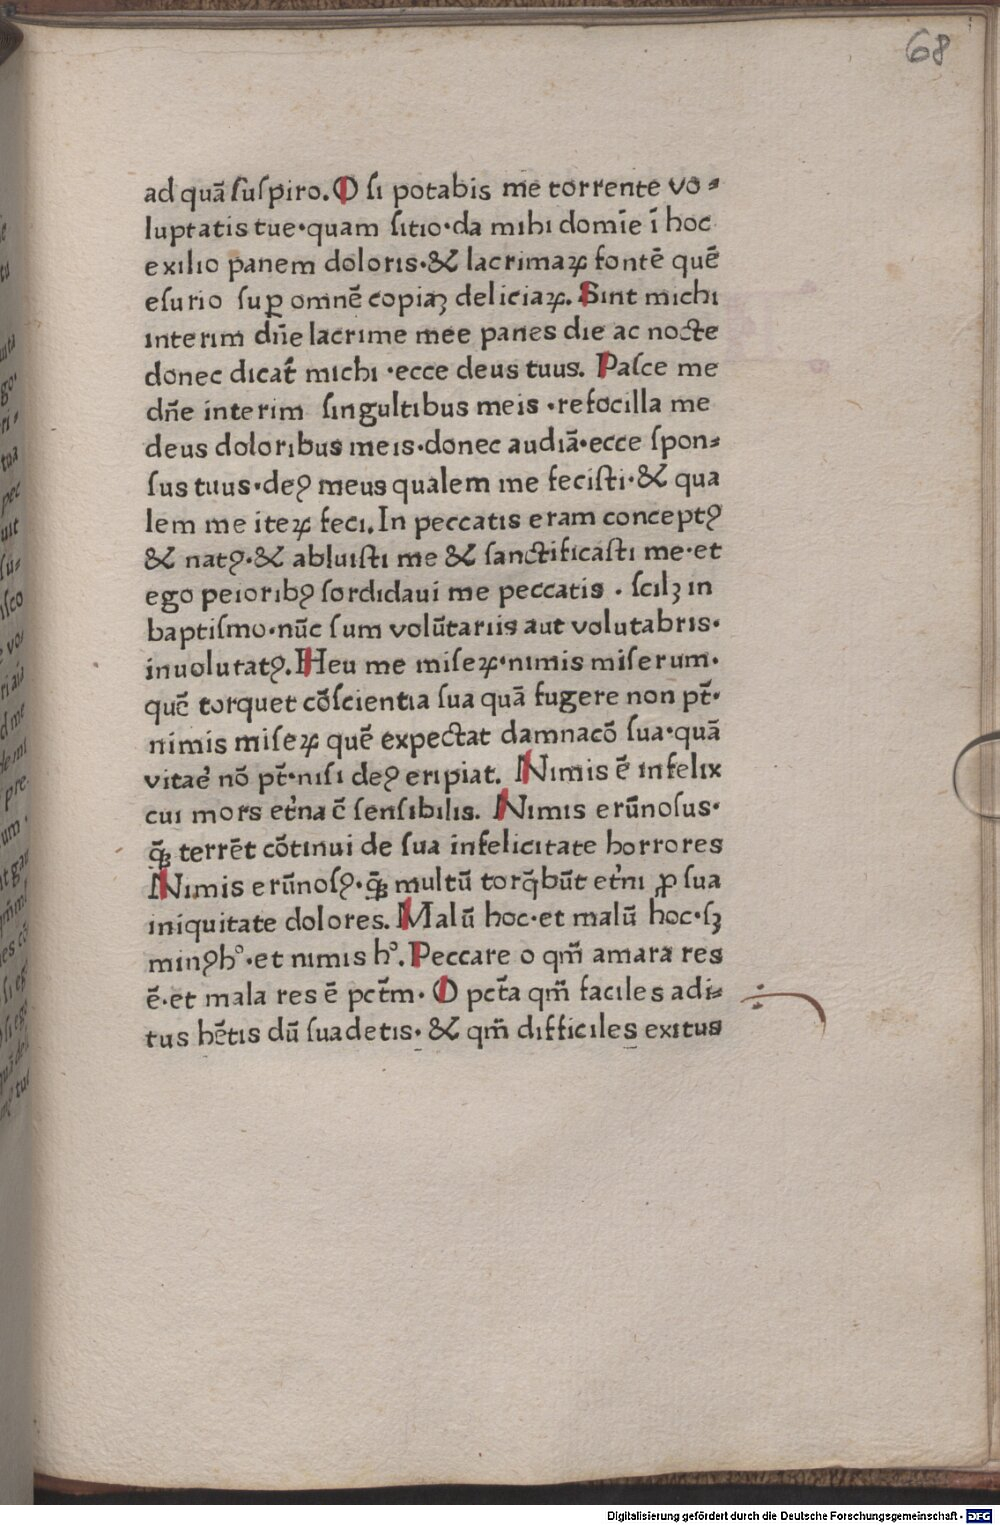 68
ad quā ſuſpiro. O ſi potabis me torrente vo⸗
luptatis tue·quam ſitio·da mihi domīe ī hoc
exilio panem doloris·& lacrimaꝝ fontē quē
eſurio ſuꝑ omnē copiaꝫ deliciaꝝ. Sint michi
interim dn̄e lacrime mee panes die ac nocte
donec dicat̄ michi ·ecce deus tuus. Paſce me
dn̄e interim ſingultibus meis ·refocilla me
deus doloribus meis·donec audiā·ecce ſpon⸗
ſus tuus·deꝰ meus qualem me feciſti·& qua
lem me iteꝝ feci. In peccatis eram conceptꝰ
& natꝰ·& abluiſti me & ſanctificaſti me·et
ego peioribꝰ ſordidaui me peccatis · ſcilꝫ in
baptiſmo·nūc ſum volūtariis aut volutabris·
inuolutatꝰ. Heu me miſeꝝ·nimis miſerum·
quē torquet cōſcientia ſua quā fugere non pt̄·
nimis miſeꝝ quē expectat damnacō ſua·quā
vitae̕ nō pt̄·niſi deꝰ eripiat. Nimis ē infelix
cui mors et̕na ē ſenſibilis. Nimis erūnoſus·
q̄ꝫ terrēt cōtinui de ſua infelicitate horrores
Nimis erūnoſꝰ·q̄ꝫ multū torq̄būt et̕ni ꝓ ſua
iniquitate dolores. Malū hoc·et malū hoc·ſꝫ
minꝰhº·et nimis hº. Peccare o qm̄ amara res
ē·et mala res ē pct̄m· O pct̄a qm̄ faciles adi⸗
tus hētis dū ſuadetis· & qm̄ difficiles exitus
Digitalisierung gefördert durch die Deutsche Forschungsgemeinschaft - DFG